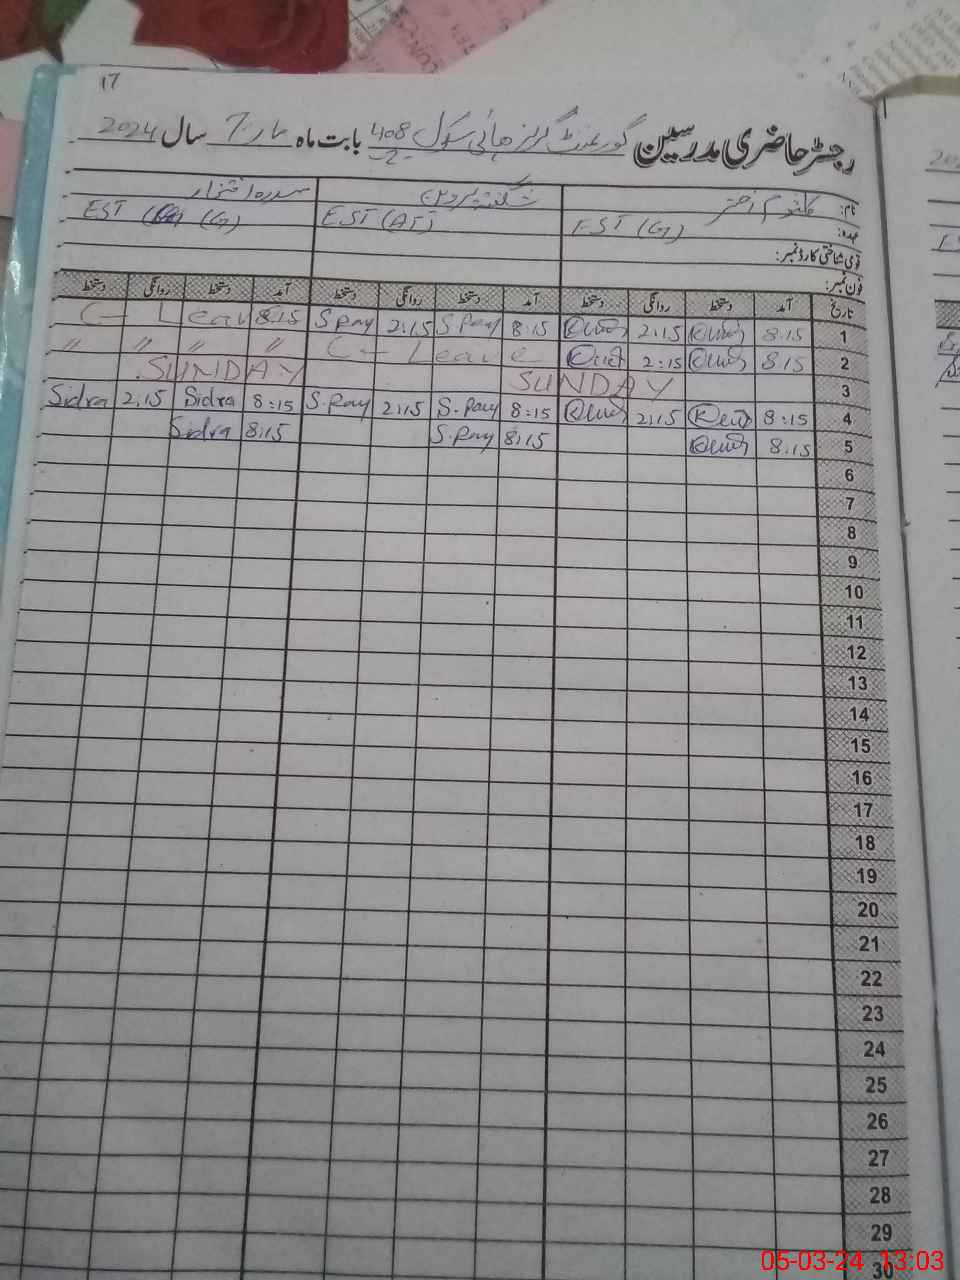 17
رجسٹر حاضری مدرسین گورنمنٹ گرلز ہائی سکول 408 بابت ماہ مارچ سال 2024
2
نام: کلثوم اختر شگفتہ پروین سدرہ افتخار
عہدہ: EST (G) EST (AT) EST (G)
قومی شناختی کارڈ نمبر:
فون نمبر:
تاریخ آمد دستخط روانگی دستخط آمد دستخط روانگی دستخط آمد دستخط روانگی دستخط
1 8:15 2:15 8:15 S.Pay 2:15 S.Pay 8:15 C- Leave
2 8:15 2:15 C- Leave " " " "
3 SUNDAY SUNDAY
4 8:15 2:15 8:15 S.Pay 2:15 S.Pay 8:15 Sidra 2:15 Sidra
5 8:15 8:15 S.Pay 8:15 Sidra
6
7
8
9
10
11
12
13
14
15
16
17
18
19
20
21
22
23
24
25
26
27
28
29
30
05-03-24 13:03